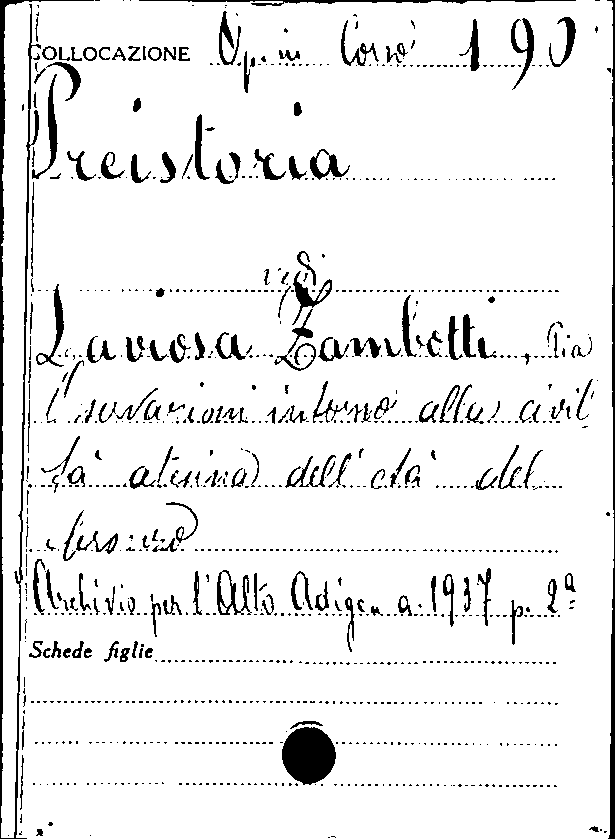 COLLOCAZIONE Op. in Corso 190
Preistoria
vedi
Laviosa Zambotti, Pia
Osservazioni intorno alla civil
tà atesina dell'età del
bronzo
Archivio per l'Alto Adige a. 1937 p. 2ª
Schede figlie